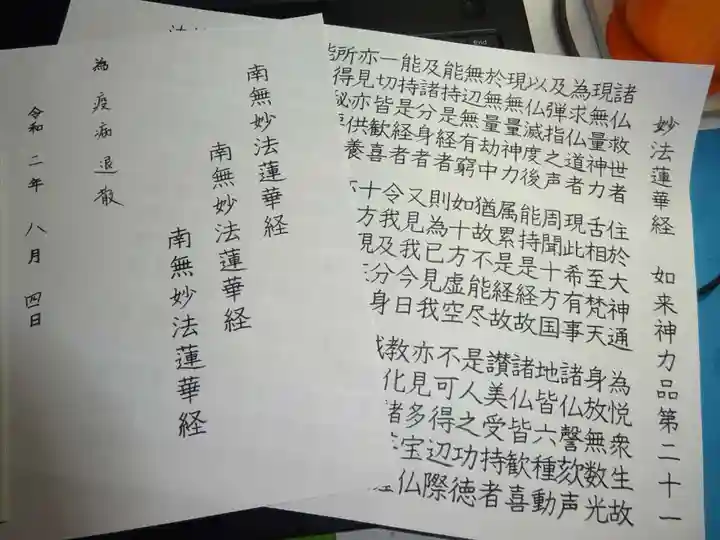 妙法蓮華経 如来神力品第二十一
諸仏救世者 住於大神通 為悦衆生故
現無量神力 舌相至梵天 身放無数光
為求仏道者 現此希有事 諸仏謦欬声
及弾指之声 周聞十方国 地皆六種動
以仏滅度後 能持是経故 諸仏皆歓喜
現無量神力 属累是経故 讃美受持者
於無量劫中 猶故不能尽 是人之功徳
無辺無有窮 如十方虚空 不可得辺際
能持是経者 則為已見我 亦見多宝仏
及諸分身者 又見我今日 教化諸
能持是経者 令我及分身
一切皆歓喜 十方
亦見亦供養
所得秘
南無妙法蓮華経
南無妙法蓮華経
南無妙法蓮華経
為疫病退散
令和二年 八月 四日